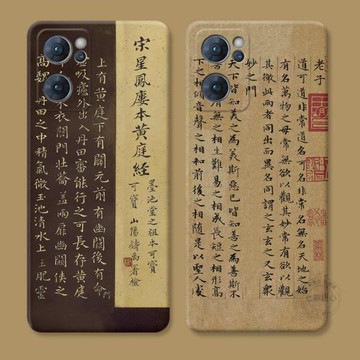 宋星鳳廔本黃庭經
墨池堂之祖本可寶
可寶 山陰
上有黃庭下有關元前有幽闕後有命門
吸廬外出入丹田審能行之可長存黃庭
衣關門壯籥蓋兩扉幽闕俠之
高魏丹田之中精氣微玉池清水上生肥靈
老子
道可道非常道名可名非常名無名天地之始
有名萬物之母常無欲以觀其妙常有欲以觀
其徼此兩者同出而異名同謂之玄之又玄衆
妙之門
天下皆知美之為美斯惡已皆知善之為善斯不
善已有無之相生難易之相成長短之相形高
下之相傾音聲之相和前後之相隨是以聖人處